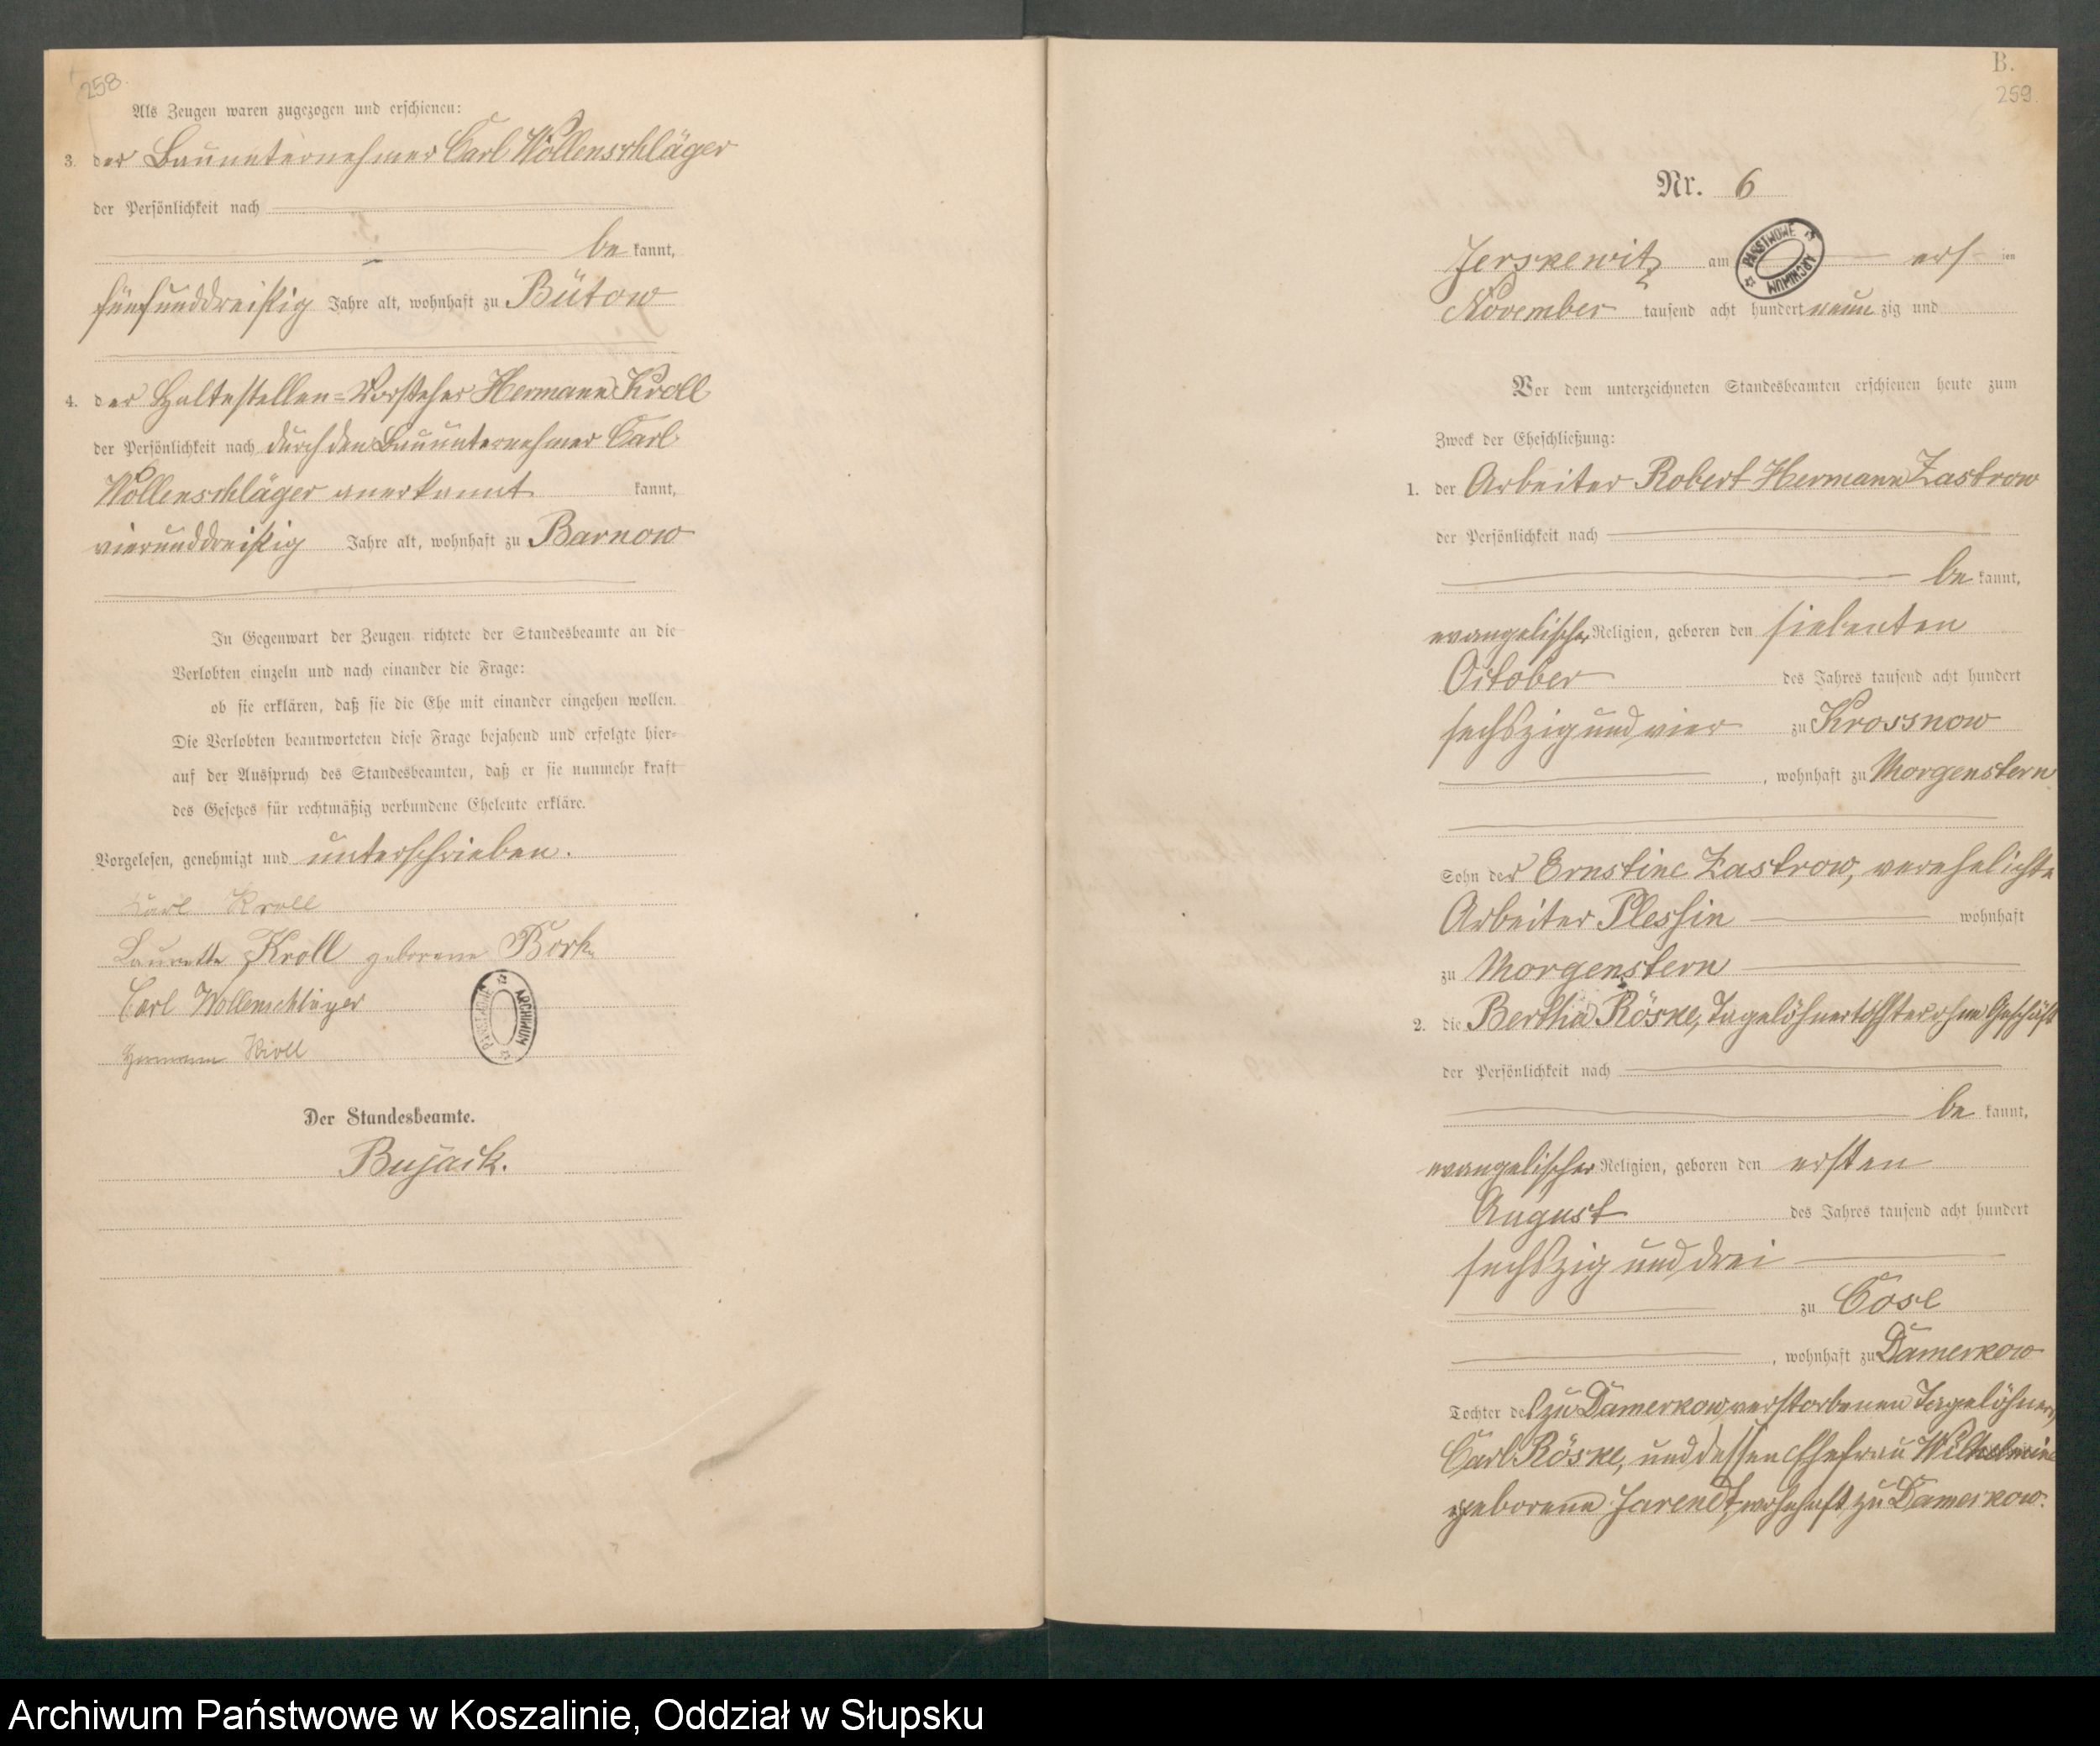 258.
Als Zeugen waren zugezogen und erschienen:
3. der Bauunternehmer Carl Wollenschläger
der Persönlichkeit nach
be kannt,
fünfunddreißig Jahre alt, wohnhaft zu Bütow
4. der Haltestellen=Vorsteher Hermann Kroll
der Persönlichkeit nach durch den Bauunternehmer Carl
Wollenschläger anerkannt kannt,
vierunddreißig Jahre alt, wohnhaft zu Barnow
In Gegenwart der Zeugen richtete der Standesbeamte an die
Verlobten einzeln und nach einander die Frage:
ob sie erklären, daß sie die Ehe mit einander eingehen wollen.
Die Verlobten beantworteten diese Frage bejahend und erfolgte hier=
auf der Ausspruch des Standesbeamten, daß er sie nunmehr kraft
des Gesetzes für rechtmäßig verbundene Eheleute erkläre.
Vorgelesen, genehmigt und unterschrieben.
Carl Kroll
Laurette Kroll geborene Bork
Carl Wollenschläger
Hermann Kroll
ARCHIWUM PAŃSTWOWE
Der Standesbeamte.
Bujack.
B.
259.
Nr. 6
Jerskewitz am ersten
PAŃSTWOWE ARCHIWUM
November tausend acht hundert neunzig und
Vor dem unterzeichneten Standesbeamten erschienen heute zum
Zweck der Eheschließung:
1. der Arbeiter Robert Hermann Zastrow
der Persönlichkeit nach
be kannt,
evangelischer Religion, geboren den siebenten
October des Jahres tausend acht hundert
sechszig und vier zu Krossnow
, wohnhaft zu Morgenstern
Sohn der Ernstine Zastrow, verehelichte
Arbeiter Plessin wohnhaft
zu Morgenstern
2. die Bertha Röske, Tagelöhnertochter ohne Geschäft
der Persönlichkeit nach
be kannt,
evangelischer Religion, geboren den ersten
August des Jahres tausend acht hundert
sechszig und drei
zu Cose
, wohnhaft zu Damerkow
Tochter des zu Damerkow verstorbenen Tagelöhners
Carl Röske, und dessen Ehefrau Wilhelmine
geborene Jarendt, wohnhaft zu Damerkow.
Archiwum Państwowe w Koszalinie, Oddział w Słupsku